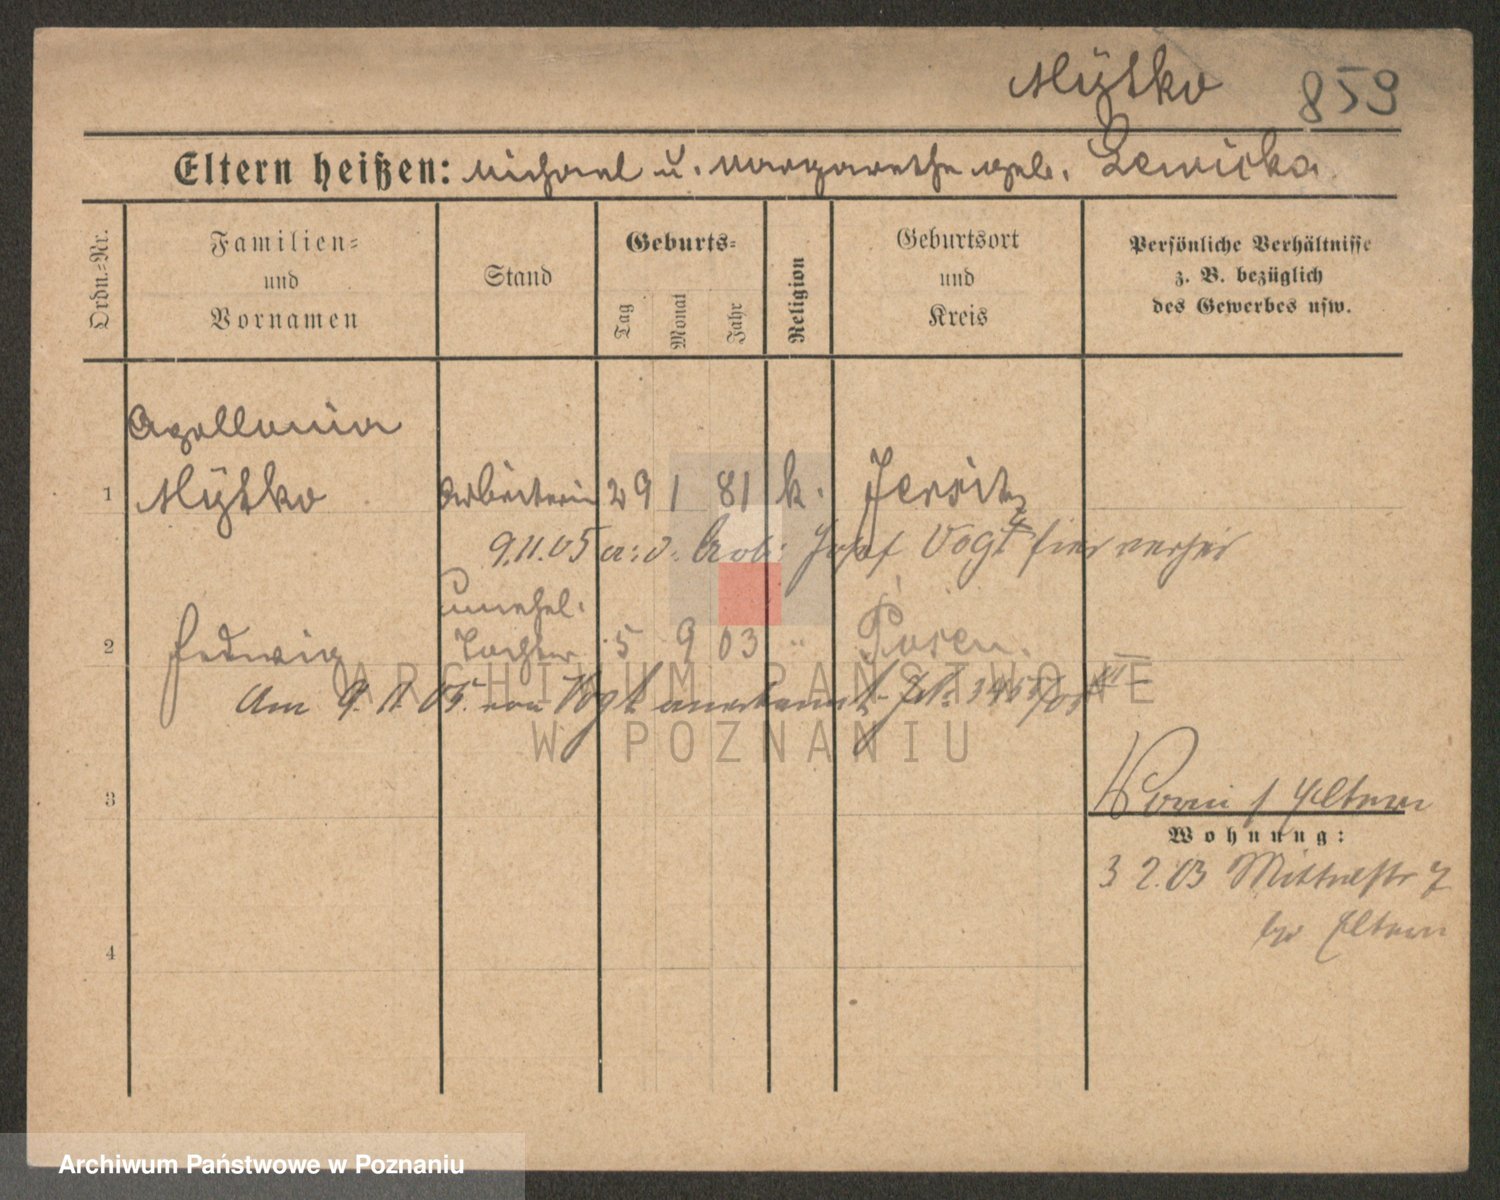 Mÿtko 859
Eltern heißen: Michael u. Margarethe geb. Lewicka.
Ordn.-Nr.
Familien-
und
Vornamen
Stand
Geburts-
Tag
Monat
Jahr
Religion
Geburtsort
und
Kreis
Persönliche Verhältnisse
z. B. bezüglich
des Gewerbes usw.
Apollonia
1 Mÿtko Arbeiterin 29 1 81 k. Jersitz
9.11.05 a. d. Arb. Josef Vogt hier verhei
unehel.
2 Hedwig Tochter 5 9 03 " Posen.
Am 9. 11. 05. von Vogt anerkannt
3
Eltern
Wohnung:
3 2.03 7
4
bei Eltern
ARCHIWUM PAŃSTWOWE
W POZNANIU
Archiwum Państwowe w Poznaniu